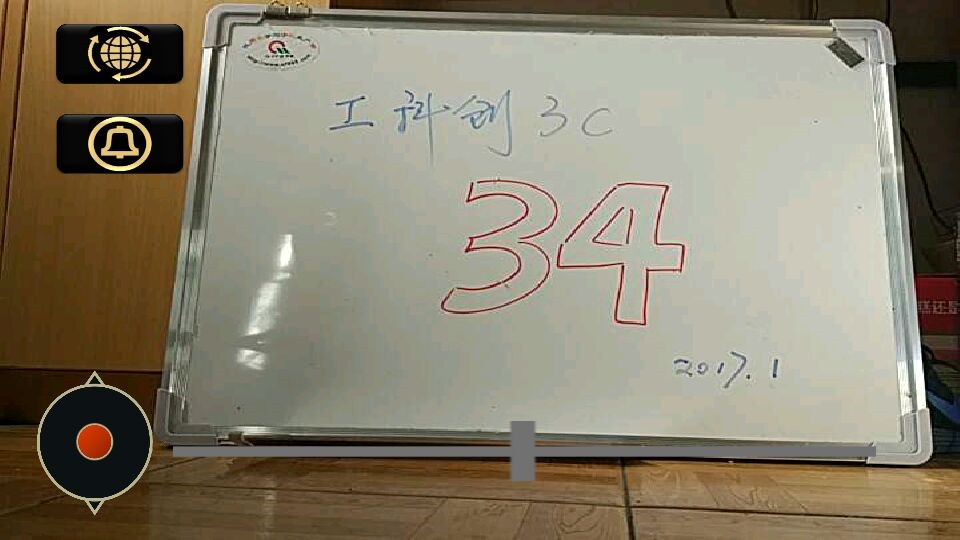 工科创3C
34
2017.1